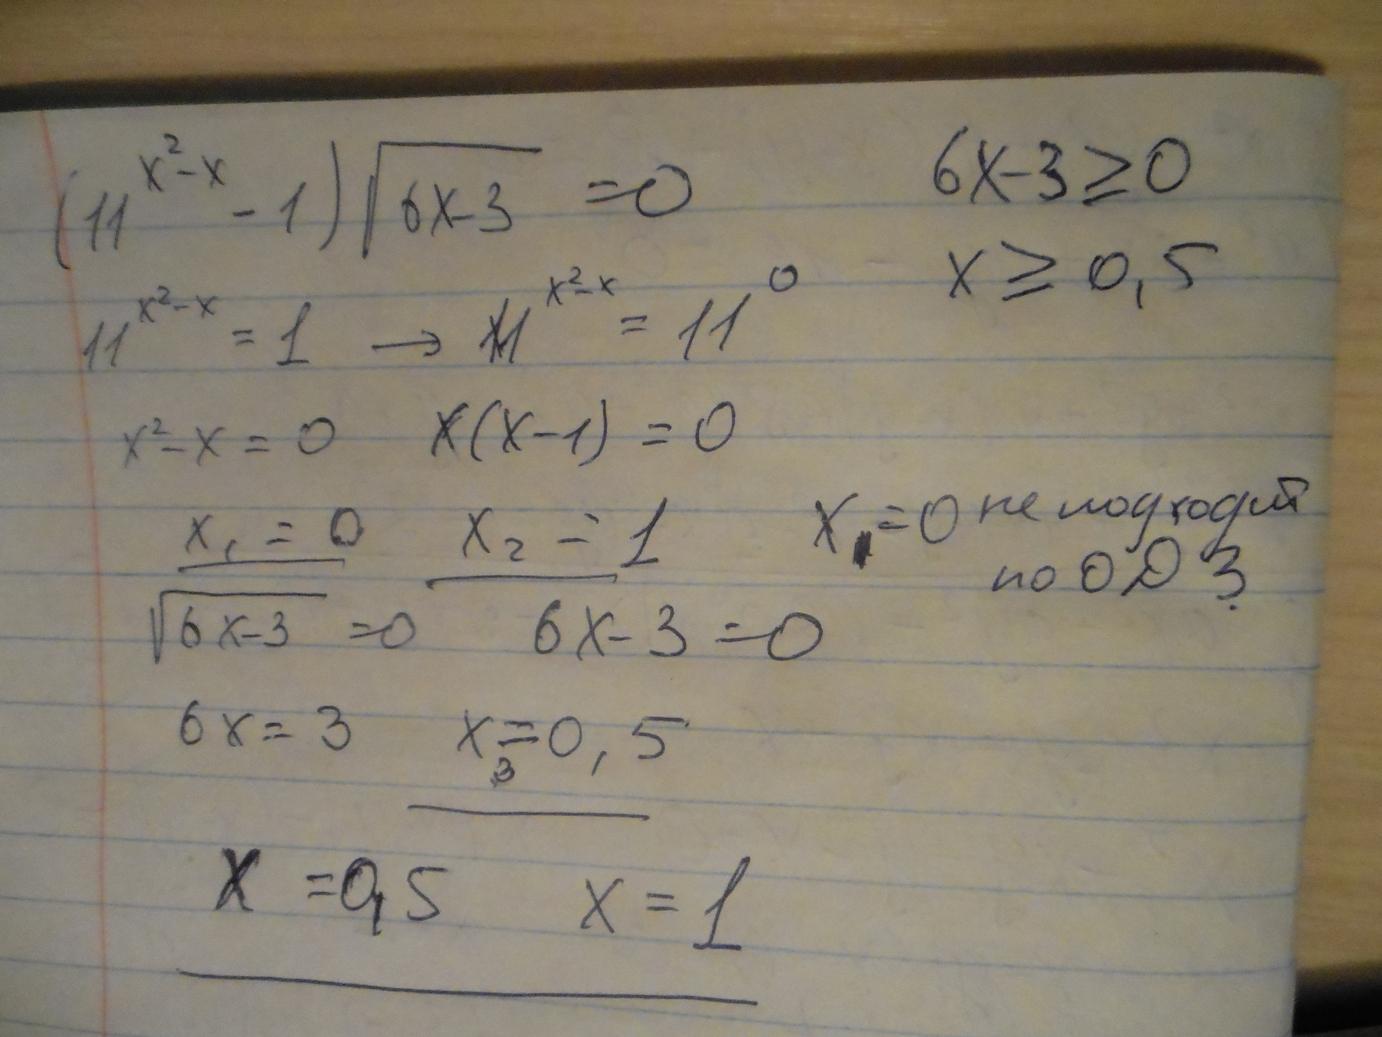 (11^{x²-x} - 1)√(6x-3) = 0
6x-3 ≥ 0
x ≥ 0,5
11^{x²-x} = 1 → 11^{x²-x} = 11^0
x²-x = 0 x(x-1) = 0
x₁ = 0 x₂ = 1
x₁ = 0 не подходит
по ОДЗ
√(6x-3) = 0 6x-3 = 0
6x = 3 x₃ = 0,5
x = 0,5 x = 1